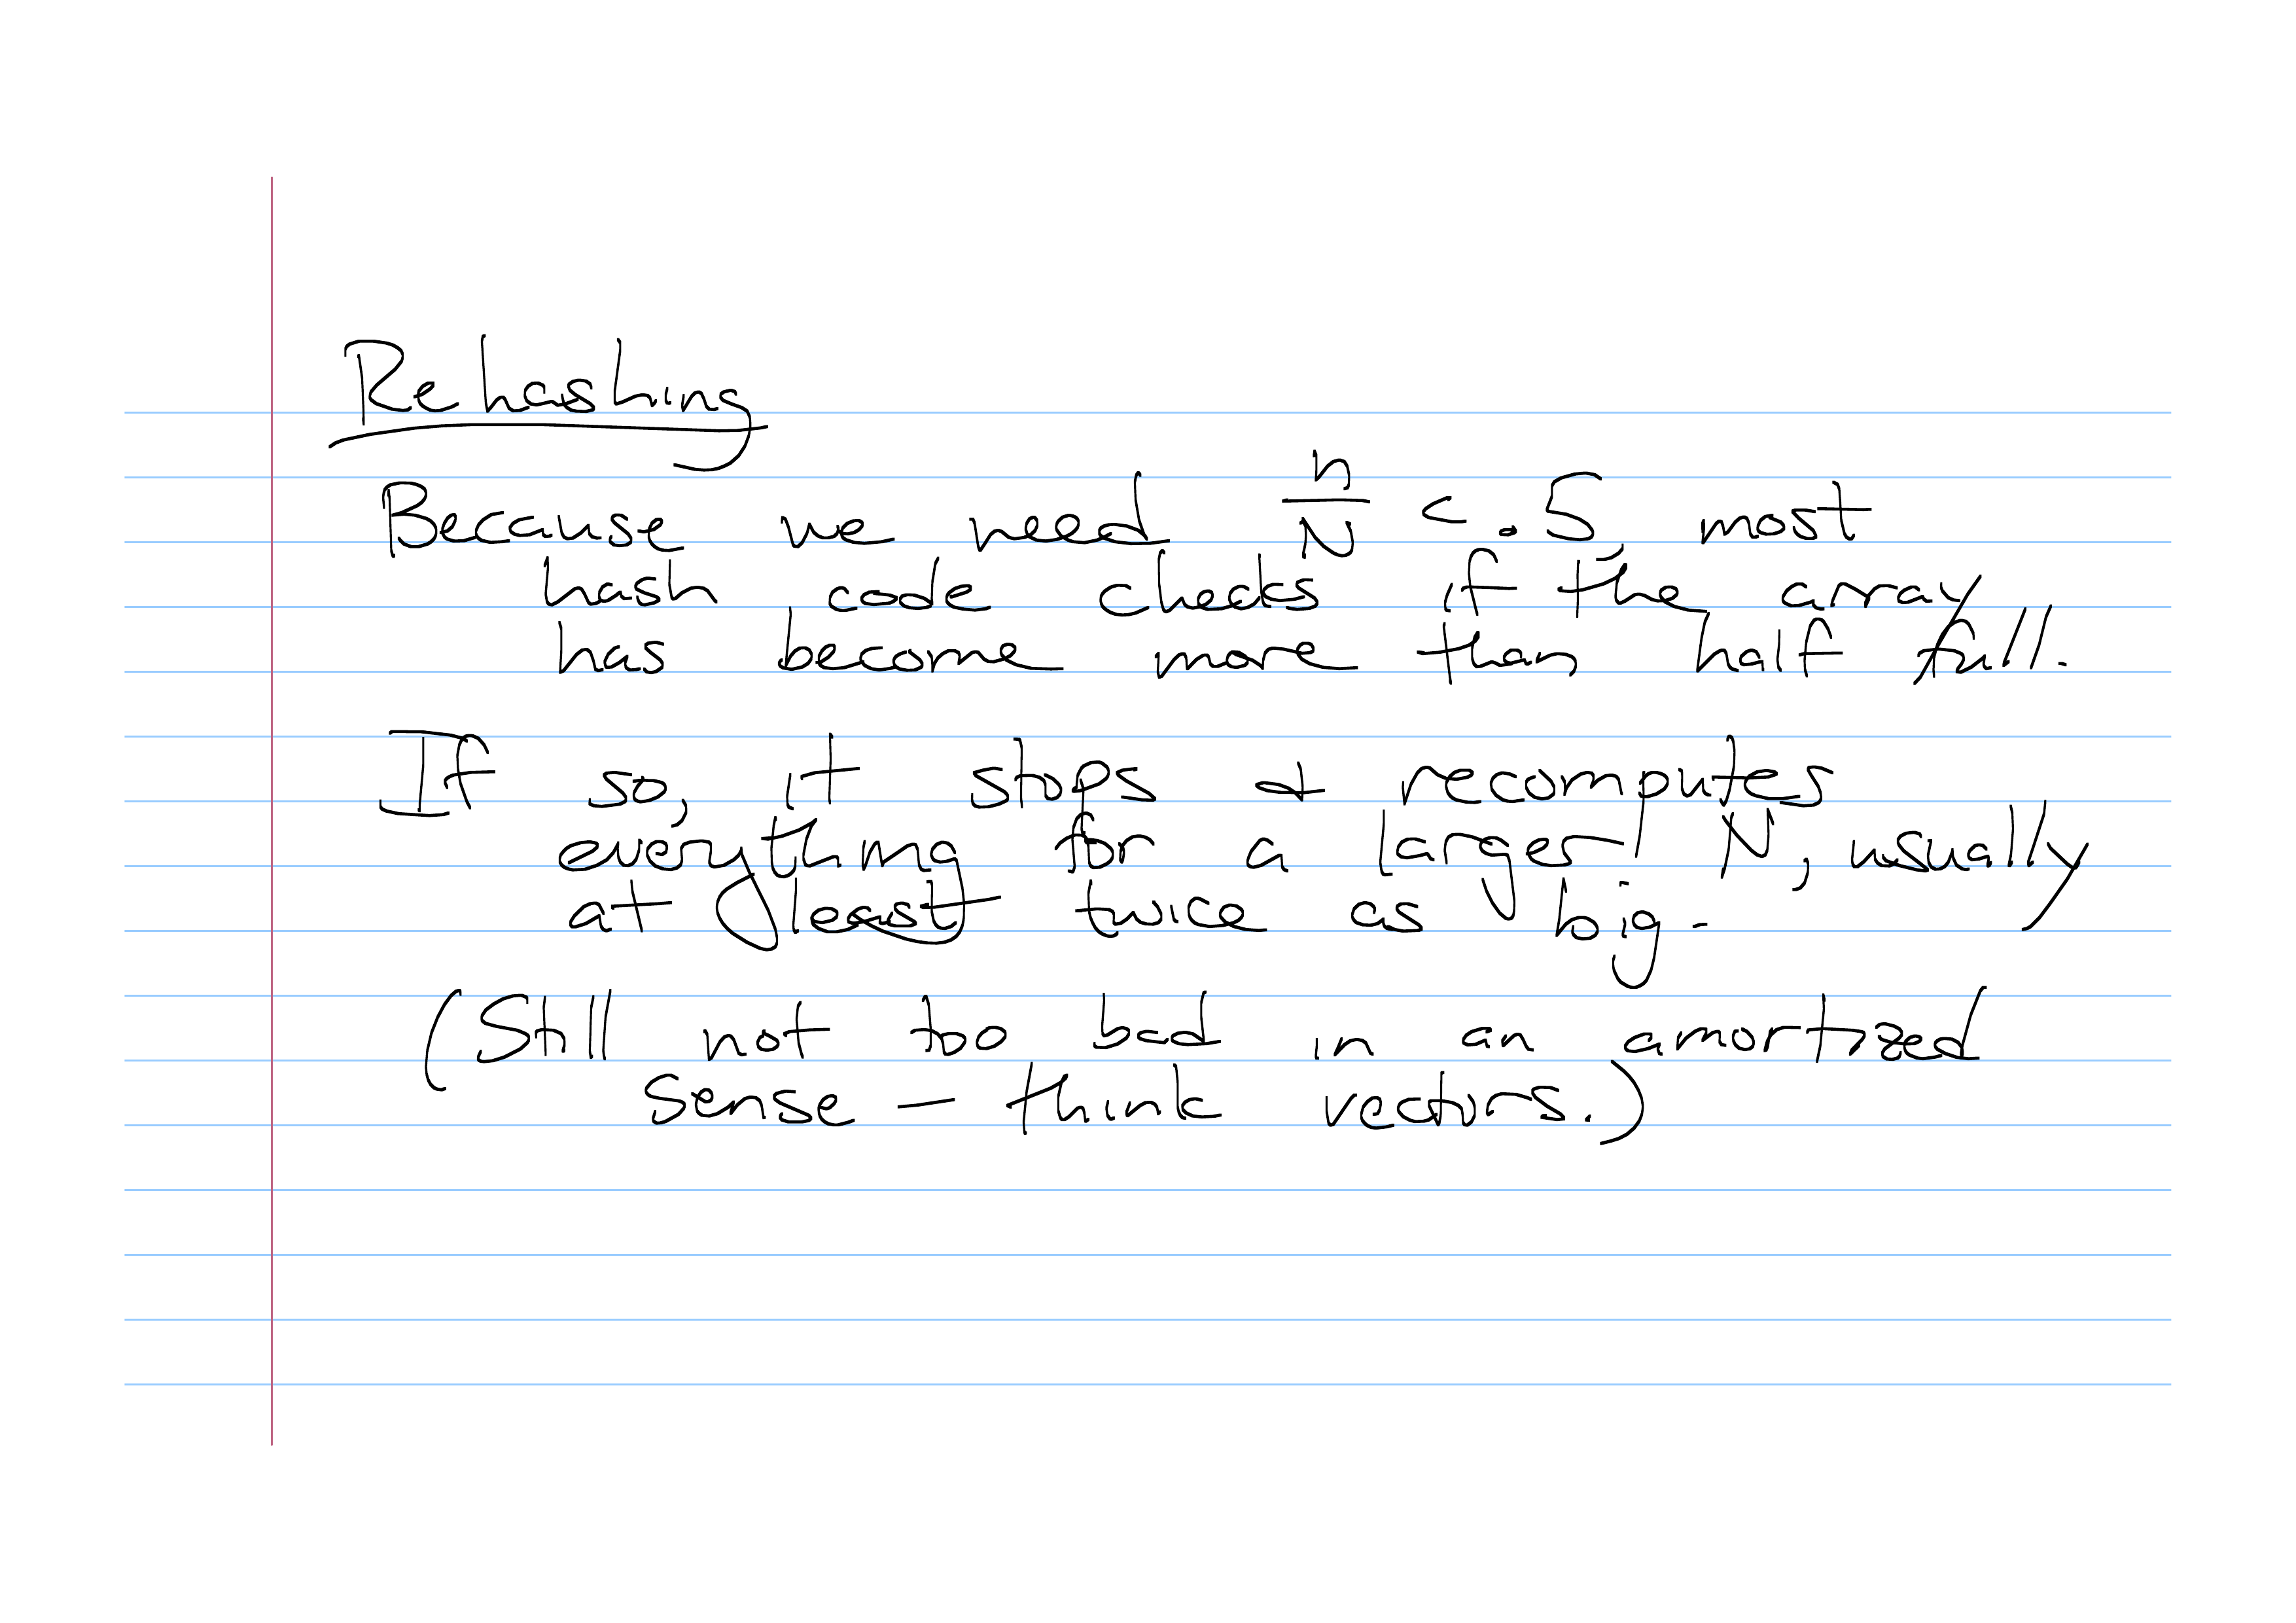 Rehashing
Because we need n/N < .5, most
hash code checks if the array
has become more than half full.
If so, it stops + recomputes
everything for a larger N, usually
at least twice as big.
(Still not too bad in an amortized
sense - think vectors.)